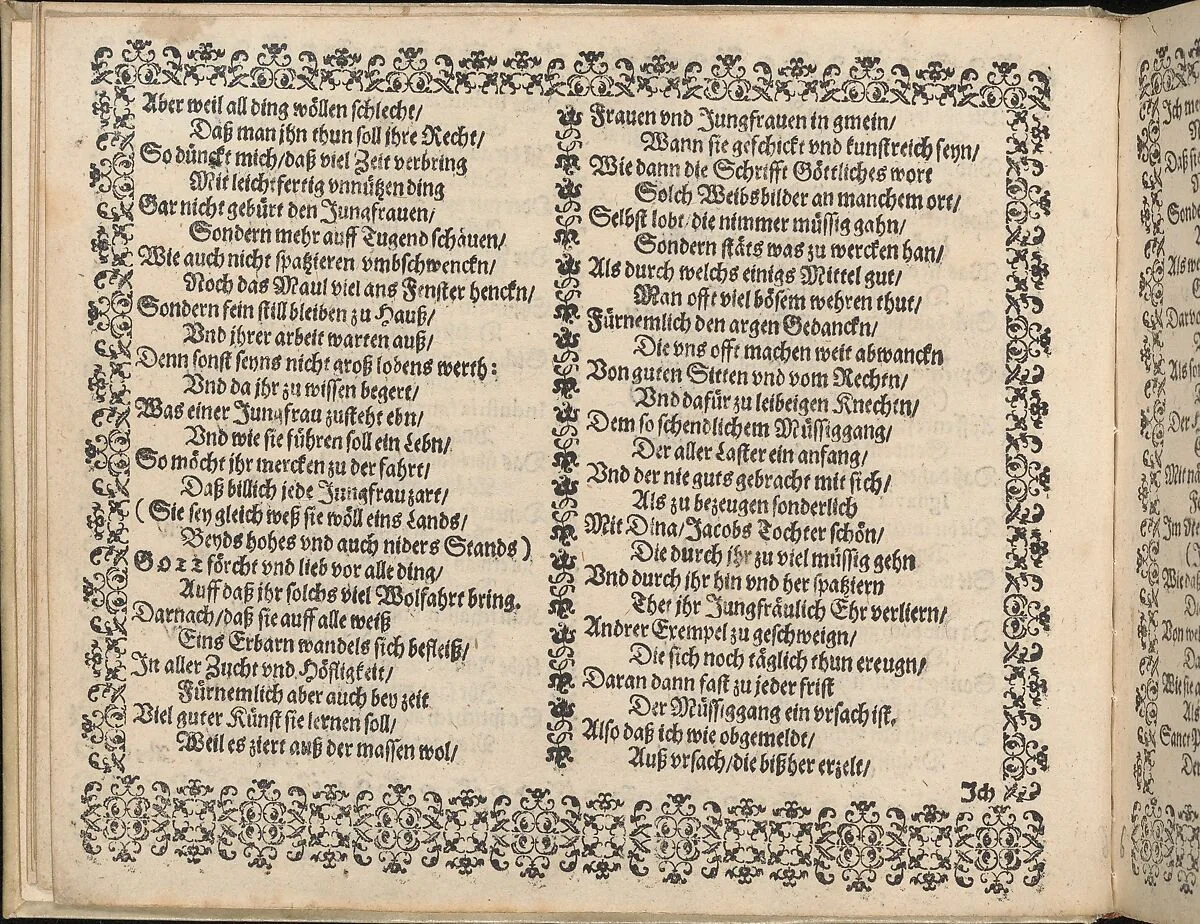 Aber weil all ding wöllen schlecht/
Daß man ihn thun soll ihre Recht/
So dünckt mich/daß viel Zeit verbring
Mit leichtfertig vnnützen ding
Gar nicht gebürt den Jungfrauen/
Sondern mehr auff Tugend schauen/
Wie auch nicht spatzieren vmbschwenckn/
Noch das Maul viel ans Fenster henckn/
Sondern fein still bleiben zu Hauß/
Vnd jhrer arbeit warten auß/
Denn sonst seyns nicht groß lobens werth:
Vnd da jhr zu wissen begert/
Was einer Jungfrau zusteht ebn/
Vnd wie sie führen soll ein Lebn/
So möcht jhr mercken zu der fahrt/
Daß billich jede Jungfrau zart/
(Sie sey gleich weß sie wöll eins Lands/
Beyds hohes vnd auch niders Stands)
GOTT förcht vnd lieb vor alle ding/
Auff daß jhr solchs viel Wolfahrt bring.
Darnach/daß sie auff alle weiß
Eins Erbarn wandels sich befleiß/
In aller Zucht vnd Höfligkeit/
Fürnemlich aber auch bey zeit
Viel guter Künst sie lernen soll/
Weil es ziert auß der massen wol/
Frauen vnd Jungfrauen in gmein/
Wann sie geschickt vnd kunstreich seyn/
Wie dann die Schrifft Göttliches wort
Solch Weibsbilder an manchem ort/
Selbst lobt/die nimmer müssig gahn/
Sondern stäts was zu wercken han/
Als durch welchs einigs Mittel gut/
Man offt viel bösem wehren thut/
Fürnemlich den argen Gedanckn/
Die vns offt machen weit abwanckn
Von guten Sitten vnd vom Rechtn/
Vnd dafür zu leibeigen Knechtn/
Dem so schendlichem Müssiggang/
Der aller Laster ein anfang/
Vnd der nie guts gebracht mit sich/
Als zu bezeugen sonderlich
Mit Dina/Jacobs Tochter schön/
Die durch jhr zu viel müssig gehn
Vnd durch jhr hin vnd her spatziern
Thet jhr Jungfräulich Ehr verliern/
Andrer Exempel zu geschweign/
Die sich noch täglich thun ereugn/
Daran dann fast zu jeder frist
Der Müssiggang ein vrsach ist.
Also daß ich wie obgemeldt/
Auß vrsach/die bißher erzelt/
Ich